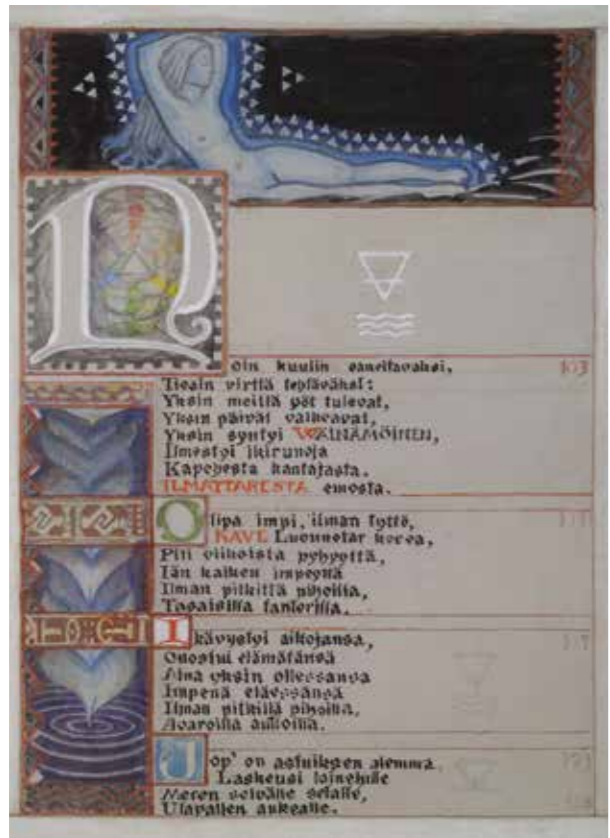 Noin kuulin saneltavaksi, 103
Tiesin virttä tehtäväksi:
Yksin meillä yöt tulevat,
Yksin päivät valkeavat,
Yksin syntyi WÄINÄMÖINEN,
Ilmestyi ikirunoja
Kapehesta kantajasta,
ILMATTARESTA emosta.
Olipa impi, ilman tyttö,
KAVE Luonnotar korea,
Piti viikoista pyhyyttä,
Iän kaiken impeyttä
Ilman pitkillä pihoilla,
Tasaisilla tanterilla.
Ikävystyi aikojansa, 117
Ouostui elämätänsä
Aina yksin ollessansa
Impenä eläessänsä
Ilman pitkillä pihoilla,
Avaroilla autioilla.
Jop' on astuiksen alemma, 123
Laskeusi lainehille
Meren selvälle selälle,
Ulapallen aukealle.